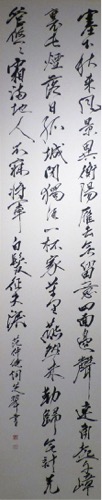 塞下秋來風景異衡陽雁去無留意四面邊聲連角起千嶂
裏長煙落日孤城閉濁酒一杯家萬里燕然未勒歸無計羌
管悠悠霜滿地人不寐將軍白髮征夫淚 范仲淹詞 書